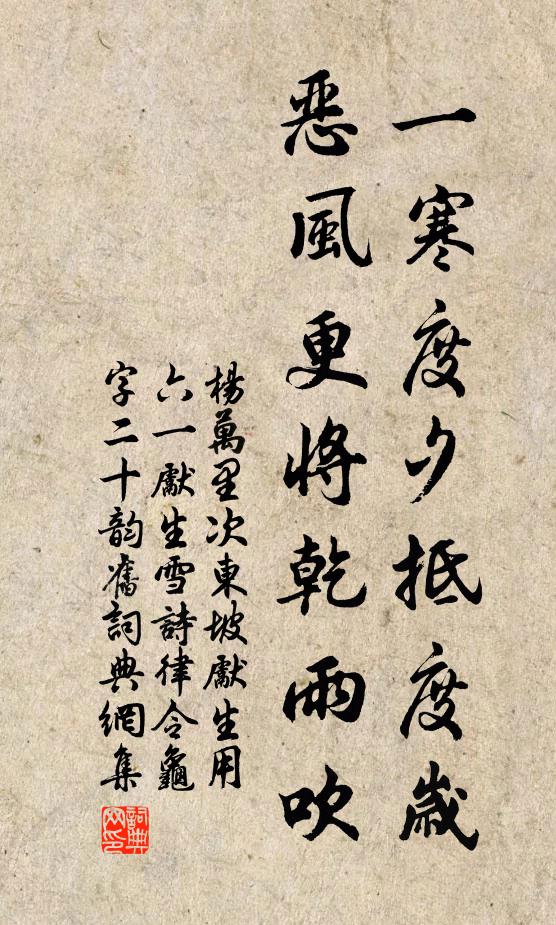 一寒度夕抵度歲
惡風更將乾雨吹
楊萬里次東坡獻生用
六一獻生雪詩律令龜
字二十韵舊詞典網集
詞典网印